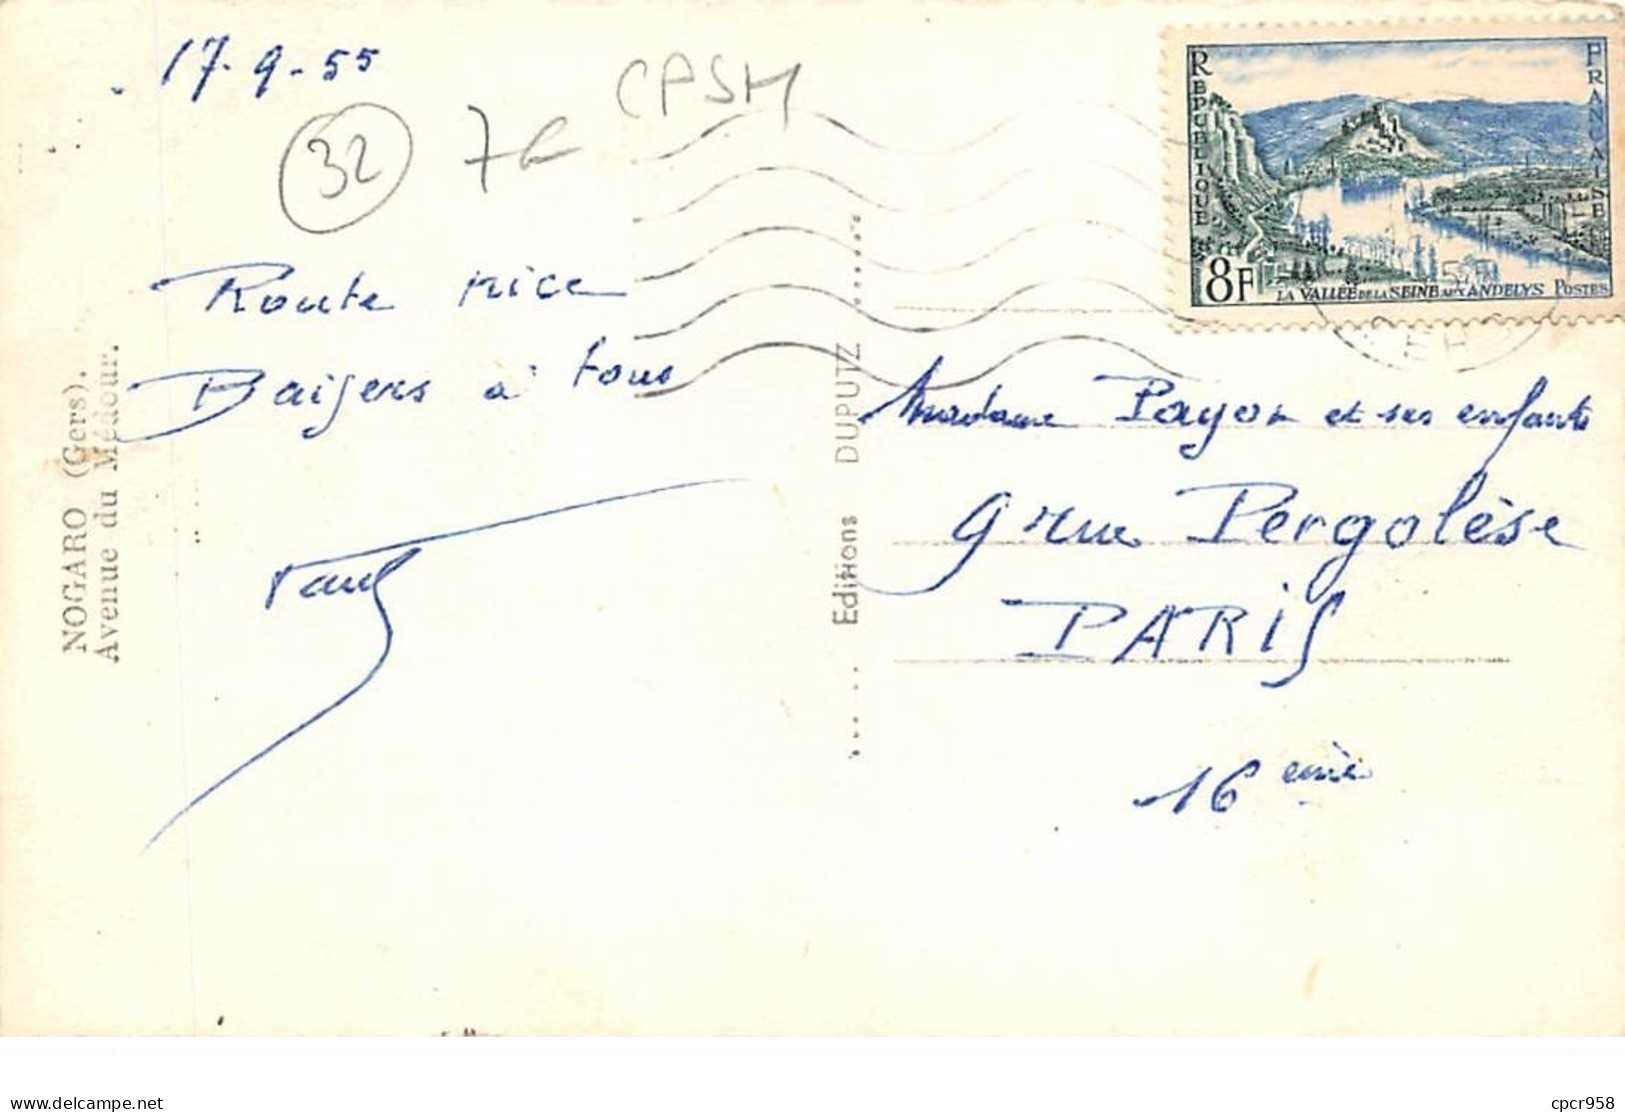 17-9-55
32
7€
CPSM
REPUBLIQUE
FRANCAISE
8F
LA VALLÉE DE LA SEINE AUX ANDELYS POSTES
Route nice
Baisers à tous
Paul
NOGARO (Gers).
Avenue du Médour.
Editions DUPUTZ
Madame Payon et ses enfants
9 rue Pergolèse
PARIS
16 eme
delcampe.net
cpcr958